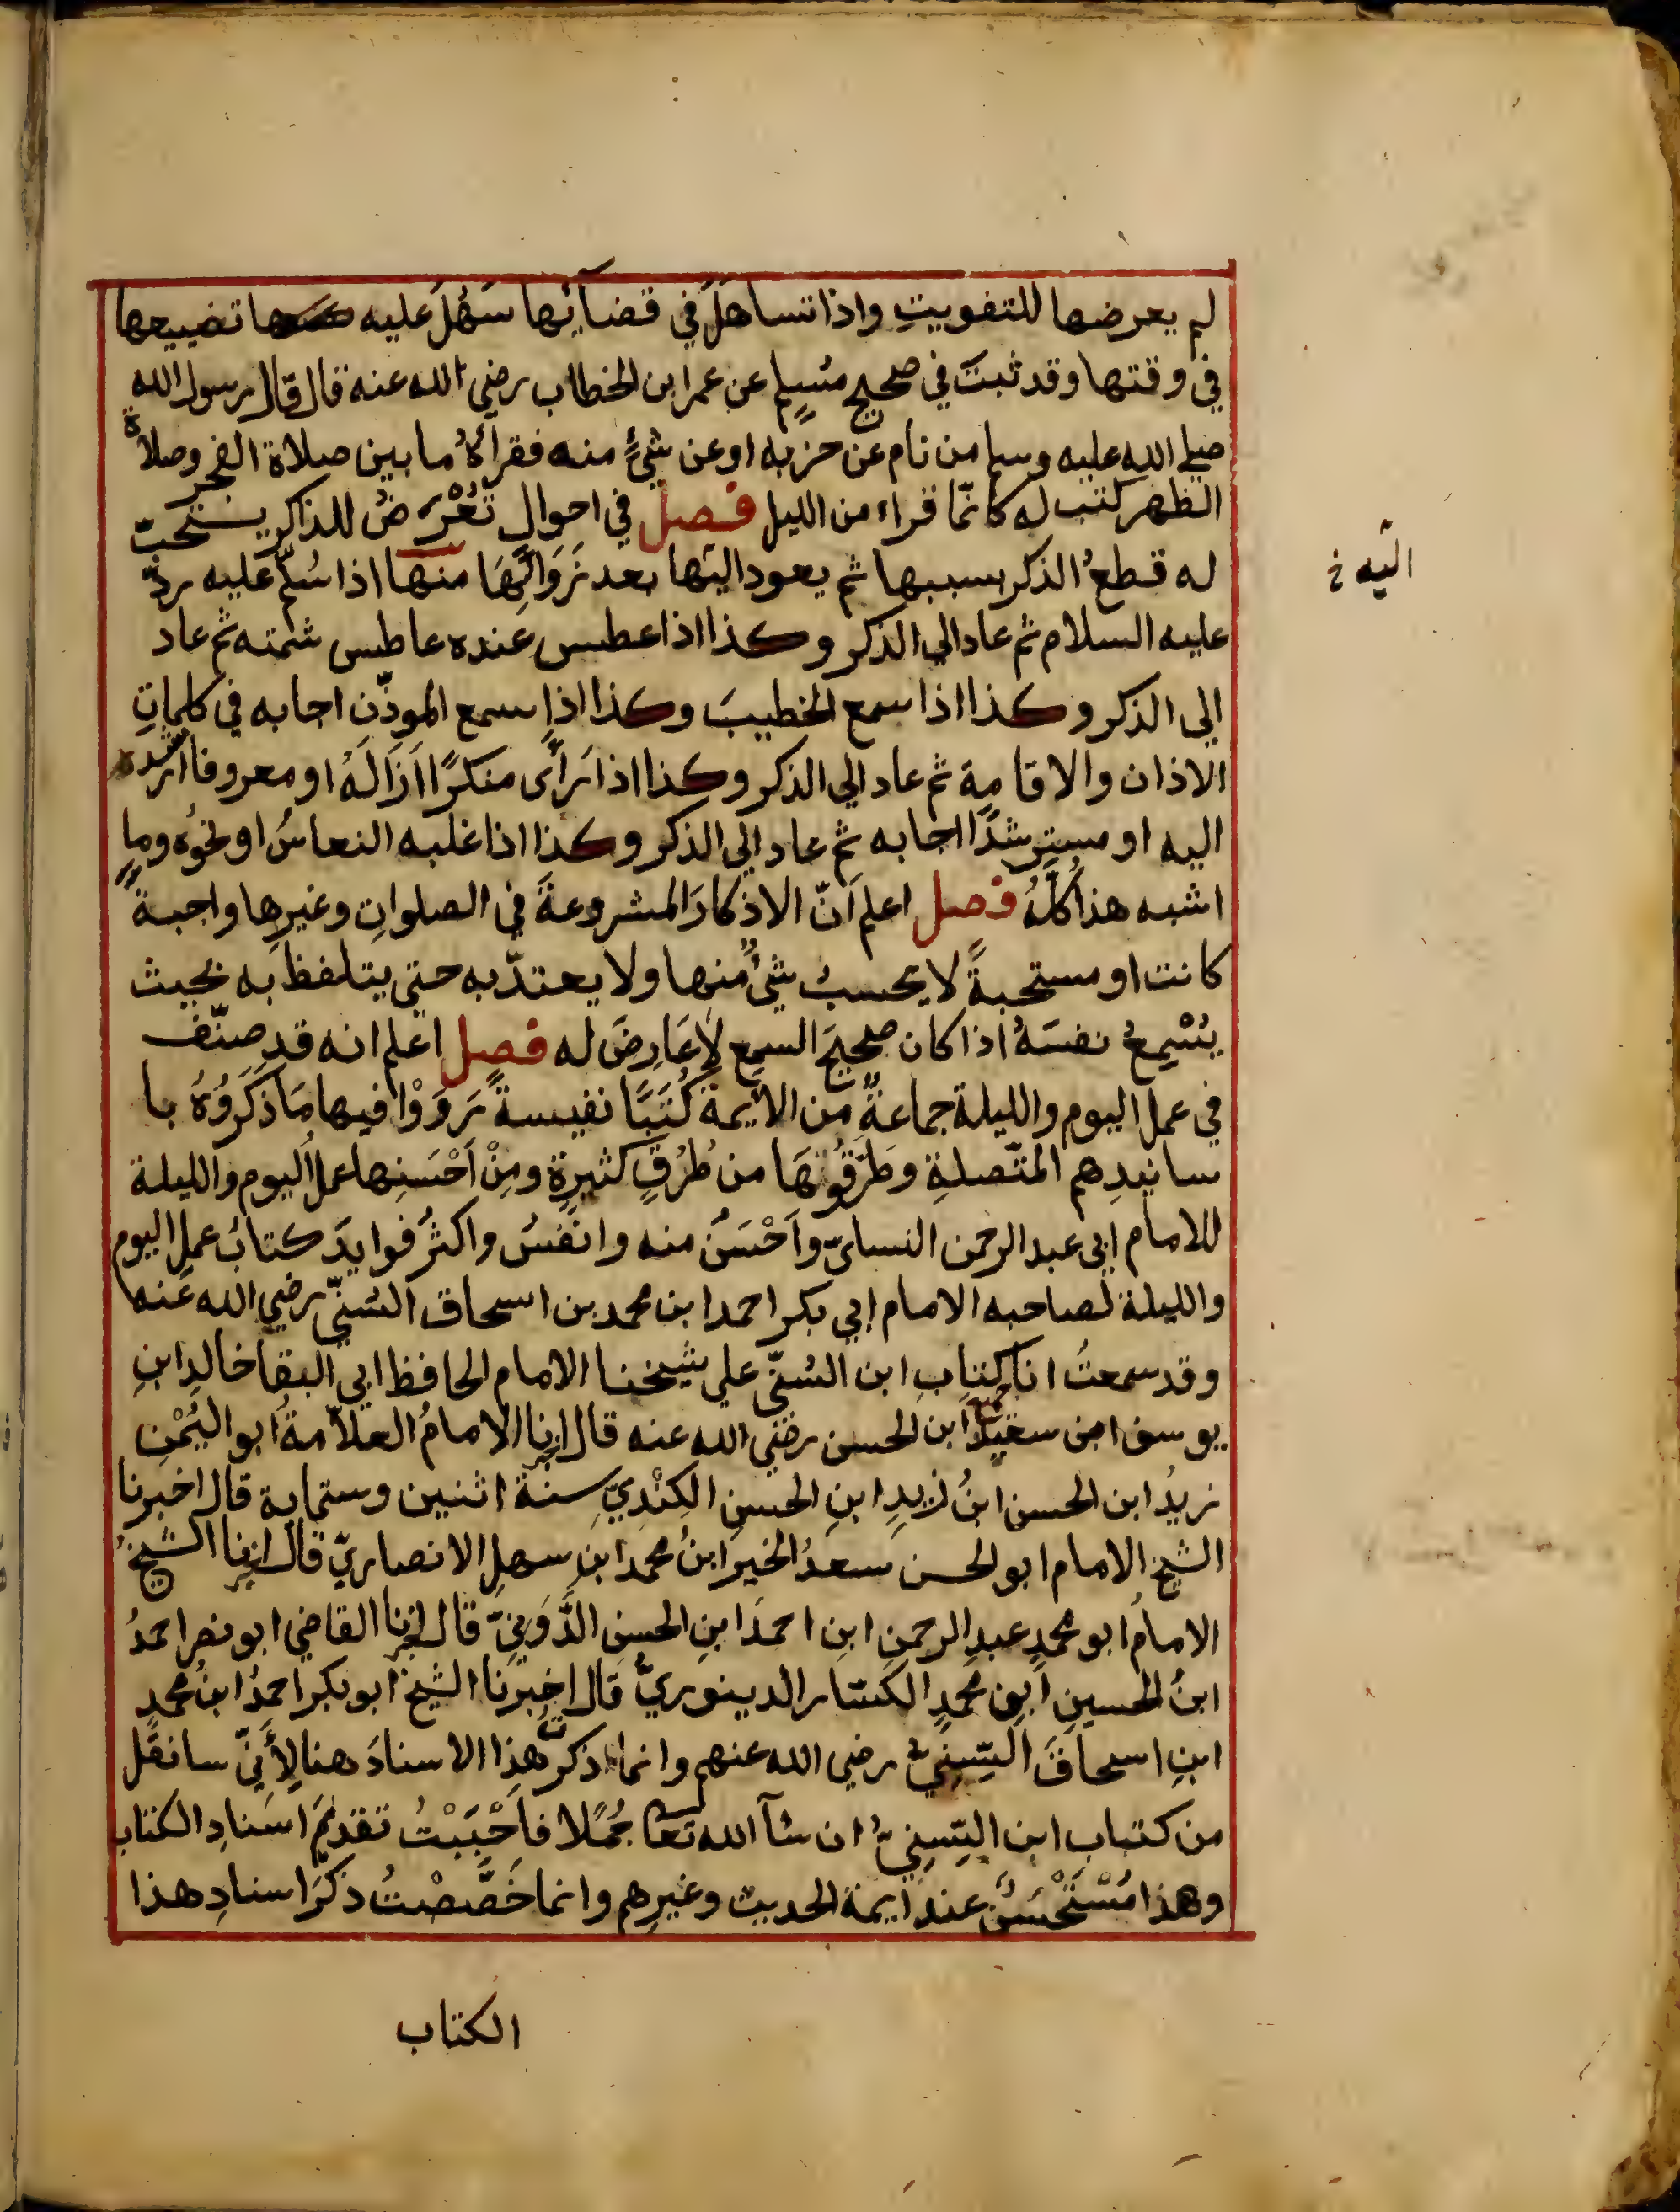 لم يعرضها للتفويتِ واذا تساهَلَ في قضآئِها سَهُلَ عليه تضييعها
في وقتها وقد ثبتَ في صحيح مُسلِم عن عمر ابن الخطاب رضي الله عنه قال قال رسول الله
صلى الله عليه وسلم من نام عن حزبه او عن شئٍ منه فقرأهُ ما بين صلاة الفجر وصلاة
الظهر كتب له كانّما قراء من الليل فصل في احوالٍ تَعْرَضُ للذاكر يستحبّ
له قطعُ الذكر بسببها ثم يعود اليها بعد زَوَالِهَا منها اذا سُلّم عليه ردّ
اليه خ
عليه السلام ثم عاد الي الذكر وكذا اذا عطس عنده عاطس شمته ثم عاد
الى الذكر وكذا اذا سمع الخطيبَ وكذا اذا سمع الموذّنِ اجابه في كلماتِ
الاذان والاقامة ثم عاد الي الذكر وكذا اذا رَأى منكرًا اَزَالَهُ او معروفا ارشده
اليه او مسترشدًا اجابه ثم عاد الي الذكر وكذا اذا غلبه النعاسُ او نحوُه وما
اشبه هذا كُلّهُ فصل اعلم اَنّ الاذكارَ المشروعةَ في الصلواتِ وغيرِها واجبةً
كانت او مستحبةً لا يحسبُ شئٌ منها ولا يعتدّ به حتى يتلفظ به بحيث
يُسْمِعُ نفسَهُ اذا كان صحيحَ السمع لا عَارِضَ له فصل اعلم انه قد صنّف
في عمل اليوم والليلة جماعةٌ من الأيمة كُتُبًا نفيسةً رَوَوْا فيها مَا ذَكَرُوُهُ با
سانيدِهم المتّصلةِ وطَرَّقُوهَا من طُرُقٍ كثيرةٍ ومِنْ اَحْسَنِها عملُ اليوم والليلة
للامام ابي عبد الرحمن النسائيّ واَحْسَنُ منه وانفَسُ واكثَرُ فوايدَ كتابُ عملِ اليوم
والليلة لصاحبه الامام ابي بكر احمد ابن محمد بن اسحاق السُنيّ رضي الله عنه
وقد سمعتُ انا كتابِ ابن السُنيّ علي شيخنا الامام الحافظ ابي البقا خالدِ ابنِ
يوسف ابن سعيد ابن الحسن رضي الله عنه قال انا الامامُ العلاّمةُ ابو اليُمْنِ
زيدُ ابن الحسن ابنُ زيدِ ابنِ الحسنِ الكِنْدِيّ سنة اثنين وستماية قال اخبرنا
الشيخ الامام ابو الحسن سعدُ الخير ابنُ محمد ابنِ سهلِ الانصاريّ قال اخبرنا الشيخُ
الامامُ ابو محمدٍ عبدِ الرحمنِ ابنِ احمدَ ابنِ الحسنِ الدَّوَنِيّ قال اخبرنا القاضي ابو نصر احمدُ
ابنُ الحسينِ ابنِ محمدِ الكسّار الدينوريُّ قال اخبرنا الشيخ ابو بكر احمدُ ابنُ محمدِ
ابنِ اسحاقَ السّنِيّ رضي الله عنهم وانما ذكرتُ هذا الاسنادَ هنا لأَنّيِ سانقُل
من كتاب ابن السّنِيّ ان شآ الله تعا جُمَلا فاَحْبَبْتُ تقديمَ اسنادِ الكتاب
وهذا مُسْتَحْسَنٌ عند ايمة الحديث وغيرِهم وانما خَصَّصْتُ ذكرَ اسنادِ هذا
الكتاب